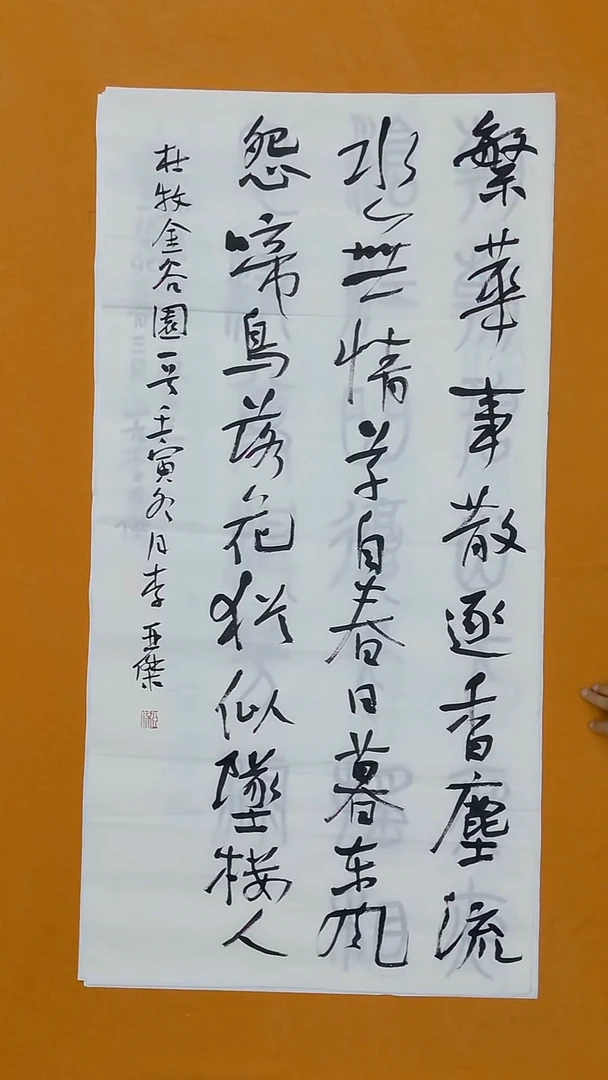 繁華事散逐香塵流
水無情草自春日暮东风
怨啼鳥落花猶似墜楼人
杜牧金谷園一首壬寅冬月李亚傑